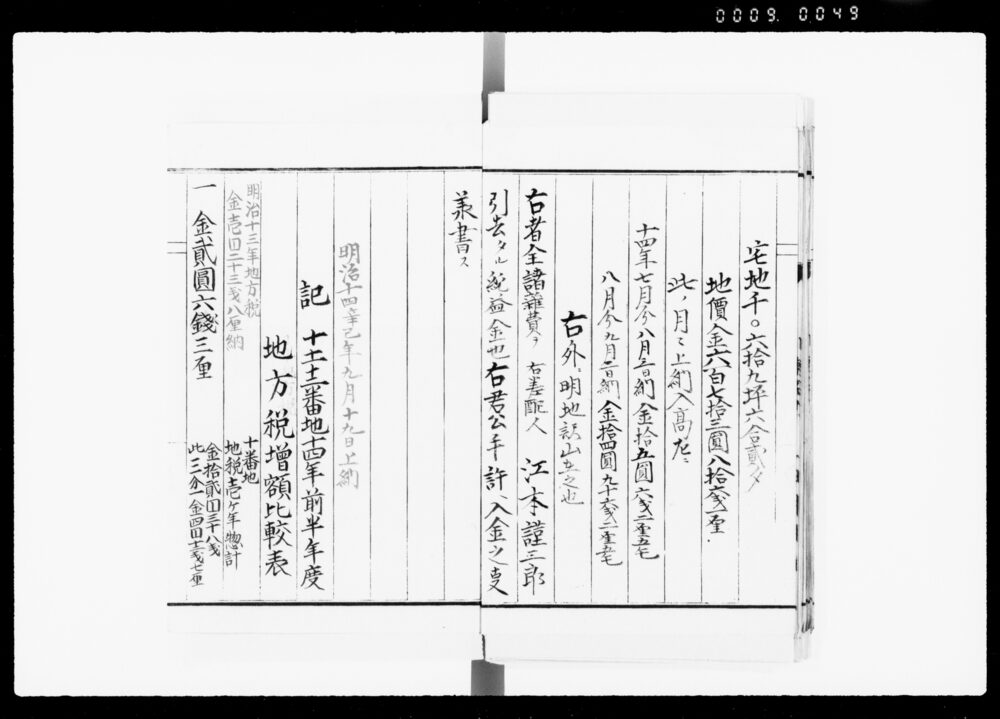 0009.0049
宅地千〇六拾九坪六合貳夕
地價金六百七拾三圓八拾六戔一厘.
此ノ月々上納入高左ニ
十四年七月分八月三日納金拾五圓六戔二厘五毛
八月分九月二日納金拾四圓九十六戔二厘五毛
右外ニ明地訳山在之也
右者全諸雜費ヲ右差配人江本謹三郎
引去タル純益金也右君公手許ヘ入金之叓
義書ス
明治十四辛巳年九月十九日上納
記十土土番地十四年前半年度
地方税增額比較表
明治十三年地方税
金壱円二十三戔八厘納
一金貳圓六錢三厘
十番地
地税壱ヶ年惣計
金拾貳円三十八戔
此三分一金四円十二戔七厘